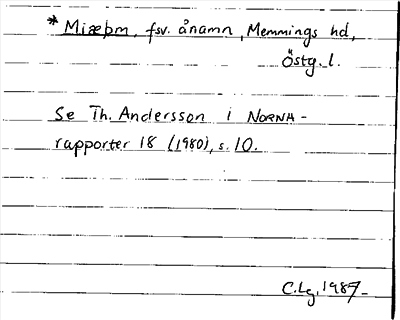 * Miæþm, fsv. ånamn, Memmings hd,
Östg. l.
Se Th. Andersson i NORNA-
rapporter 18 (1980), s. 10.
C.Lg. 1987